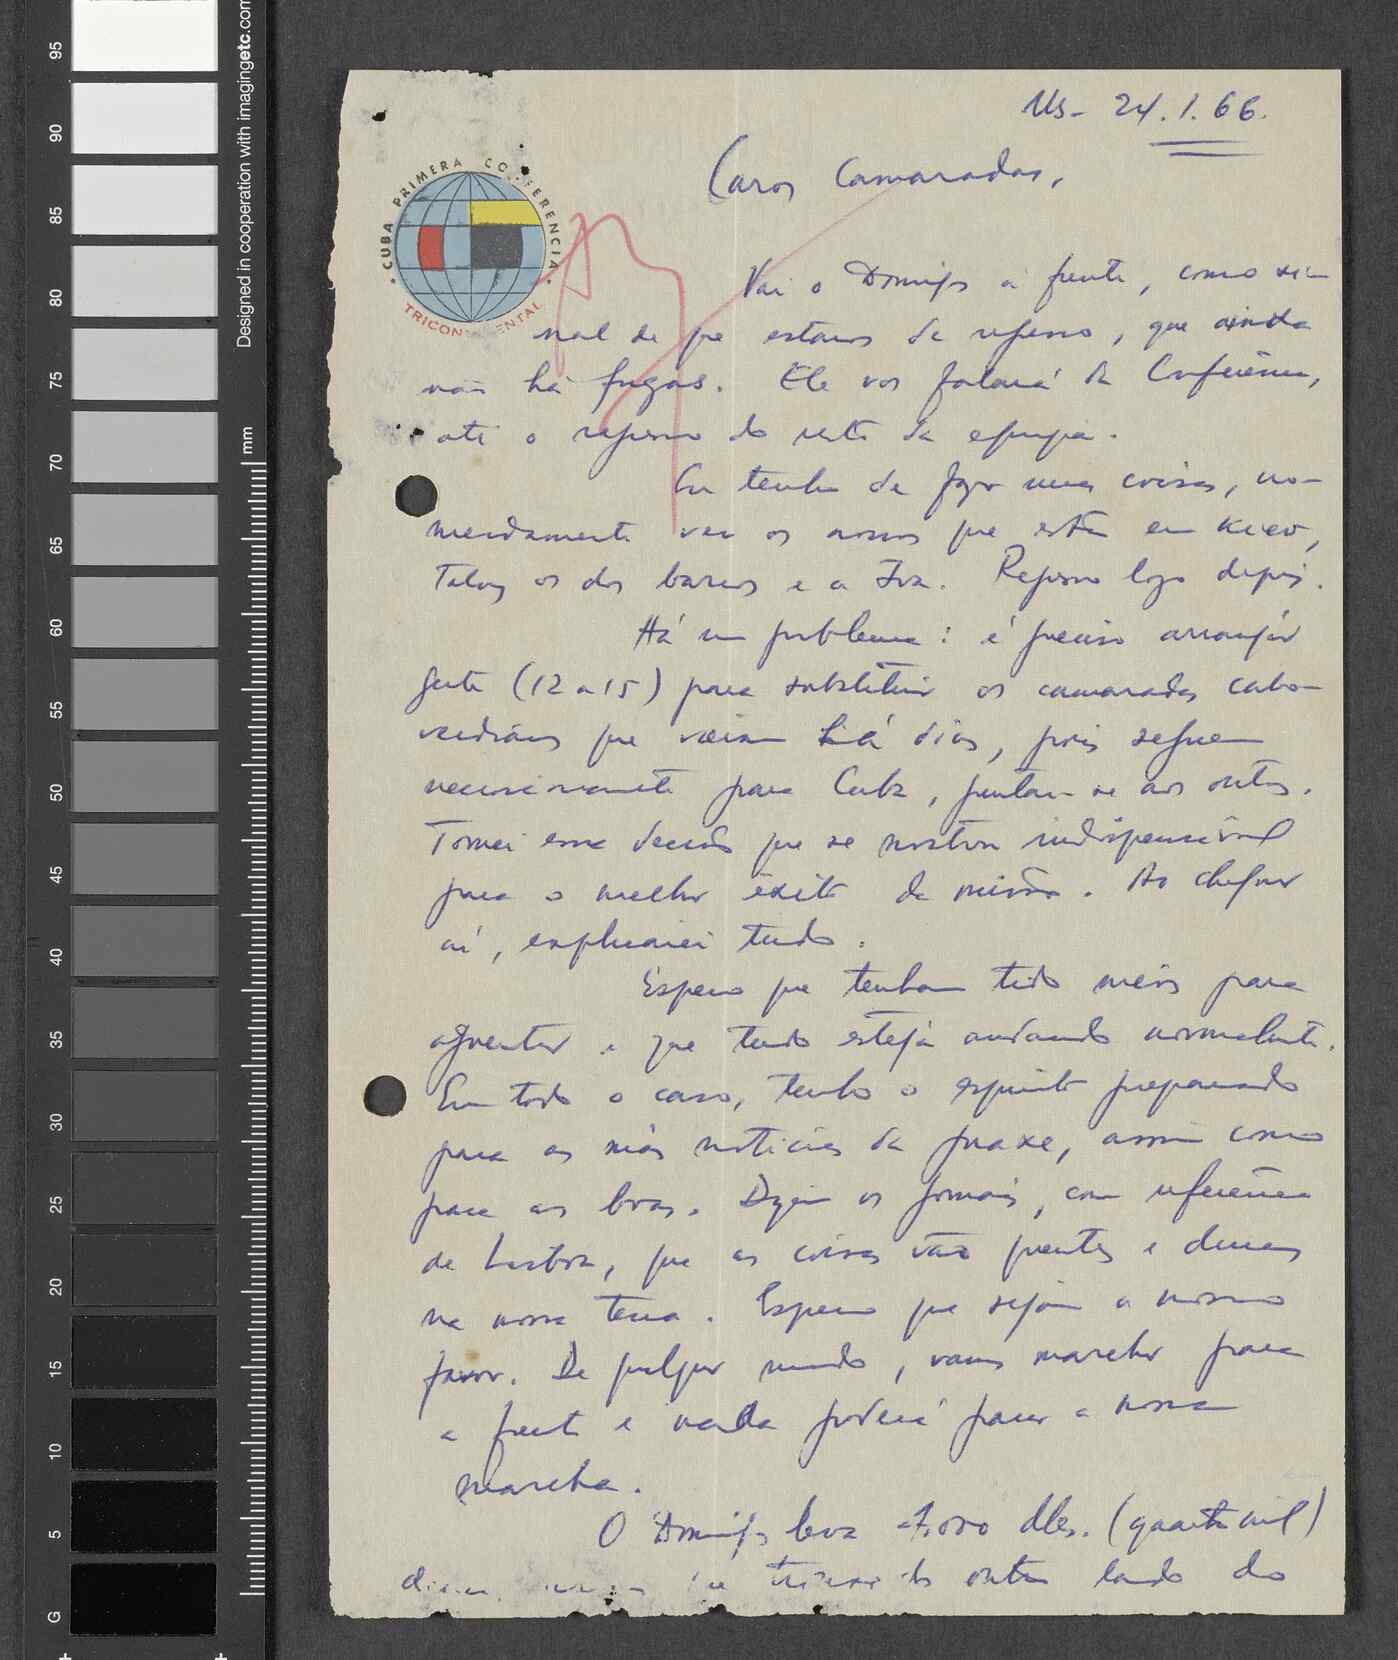 Designed in cooperation with imagingetc.com
mm
95
90
85
80
75
70
65
60
55
50
45
40
35
30
25
20
15
10
5
G
CUBA PRIMERA CONFERENCIA
TRICONTINENTAL
24.1.66.
Caros Camaradas,
Vai o Domingos à frente, como si-
nal de que estamos de regresso, que ainda
não há fugas. Ele vos falará da Conferência,
até o regresso do resto da equipa.
Eu tenho de fazer umas coisas, no-
meadamente ver os nossos que estão em Kiev,
Talvez os dos barcos e a Iva. Regresso logo depois.
Há um problema: é preciso arranjar
gente (12 a 15) para substituir os camaradas cabo-
verdianos que vieram há dias, pois seguem
necessariamente para Cuba, juntam-se aos outros.
Tomei essa decisão que se mostra indispensável
para o melhor êxito da missão. Ao chegar
aí, explicarei tudo.
Espero que tenham tido meios para
aguentar e que tudo esteja andando normalmente.
Em todo o caso, tenho o espírito preparado
para as más notícias da praxe, assim como
para as boas. Dizem os jornais, com referência
de Lisboa, que as coisas vão quentes e duras
na nossa terra. Espero que sejam a nosso
favor. De qualquer modo, vamos marchar para
a frente e nada poderá parar a nossa
marcha.
O Domingos leva 4.000 dls. (quatro mil)
outro lado do